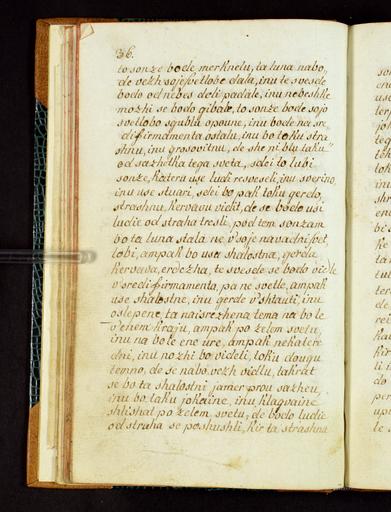 36.
to sonze bode merknelu, ta luna nabo„
de vezh soje svetlobe dala, inu te svesde
bodo od nebes doli padale, inu nebeshke
mozhi se bodo gibale, to sonze bode sojo
svetlobo sgubilu spoune, inu bode na sre„
di firmamenta ostalu, inu bo toku stra
shnu, inu grosovitnu, de she ni blu taku
od sazhetka tega sveta, sdei to lubi
sonze, katera use ludi resveseli, inu sverino,
inu use stuari, sdei bo pak toku gerdo,
strashnu, kervavu vidit, de se bodo usi
ludie od straha tresli, pod tem sonzam
bo ta luna stala ne v'soje navadni svet„
lobi, ampak bo usa shalostna, gerda
kervava, erdezha, te svesde se bodo vidle
v'sredi firmamenta, pa ne svetle, ampak
use shalostne, inu gerde v'shtalti, inu
oslepene, ta naisrezhena tema na bo le
v'enem kraju, ampak po zelem svetu,
inu na bo le ene ure, ampak nekatere
dni, inu nozhi bo videti, toku dougu
temno, de se nabo vezh vidlu, takrat
se bo ta shalostni jamer prou sazheu,
inu bo taku jokaine, inu klagvaine
shlishat po zelem svetu, de bodo ludie
od straha se poshushli, kir ta strashna